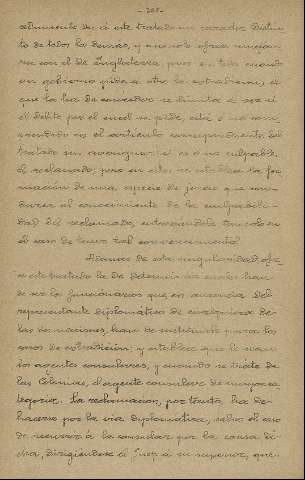 - 208 -
adimento de á este tratado un caracter distin
to de todos los demas, y aun solo ofrece semejan
za con el de Inglaterra, pues en toda cuando
un gobierno pida a otro la extradicion, el
que la ha de conceder se limita a ver si
el delito por el cual se pide, está ó no com
prendido en el articulo correspondiente del
tratado sin averiguar si es ó no culpable
el reclamado, pero en este se establece la for
macion de una especie de juicio que con
duzca al conocimiento de la culpabili
dad del reclamado, entregandole tan solo en
el caso de tener tal convencimiento.
Además de esta singularidad, ofre
ce este tratado la de determinar cuales han
de ser los funcionarios que en ausencia del
representante diplomatico de cualquiera de
las dos naciones, han de sustituirle para los
casos de extradicion; y establece que lo sean
los agentes consulares, y cuando se trate de
las Colonias, el agente consular de mayor ca
tegoria. La reclamacion, por tanto, ha de
hacerse por la via diplomatica, salvo el caso
de recurrir á la consular por la causa di
cha, dirigiendose el Juez a su superior, que